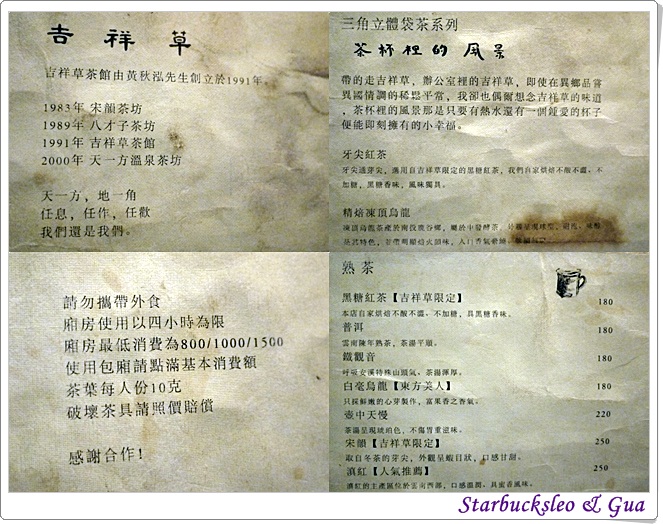 吉祥草
吉祥草茶館由黃秋泓先生創立於1991年
1983年 宋韻茶坊
1989年 八才子茶坊
1991年 吉祥草茶館
2000年 天一方溫泉茶坊
天一方，地一角
任息，任作，任歡
我們還是我們。
三角立體袋茶系列
茶杯裡的風景
帶的走吉祥草，辦公室裡的吉祥草，即使在異鄉品嘗
異國情調的稀鬆平常，我卻也偶爾想念吉祥草的味道
，茶杯裡的風景那是只要有熱水還有一個鍾愛的杯子
便能即刻擁有的小幸福。
牙尖紅茶
牙尖透芽尖，選用自吉祥草限定的黑糖紅茶，我們自家烘焙不酸不澀。不
加糖，黑糖香味，風味獨具。
精焙凍頂烏龍
凍頂烏龍茶產於南投鹿谷鄉，屬於中發酵茶，
入口香氣
請勿攜帶外食
廂房使用以四小時為限
廂房最低消費為800/1000/1500
使用包廂請點滿基本消費額
茶葉每人份10克
破壞茶具請照價賠償
感謝合作！
熟茶
黑糖紅茶【吉祥草限定】 180
本店自家烘焙不酸不澀。不加糖，具黑糖香味。
普洱 180
雲南陳年熟茶，茶湯平順。
鐵觀音 180
呼吸安溪特殊山頭氣。茶湯渾厚。
白毫烏龍【東方美人】 180
只採鮮嫩的心芽製作，富果香之香氣。
壺中天慢 220
茶湯呈現琥珀色，不傷胃重滋味。
宋韻【吉祥草限定】 250
取自冬茶的芽尖，外觀呈蝦目狀，口感甘甜。
滇紅【人氣推薦】 250
滇紅的主產區位於雲南西部，口感溫潤。具蜜香風味。
Starbucksleo & Gua